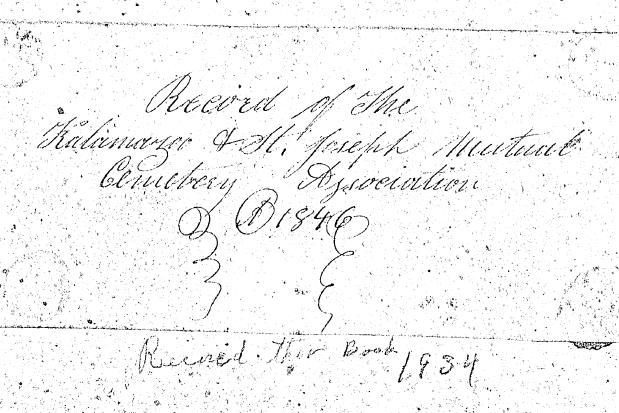 Record of The
Kalamazoo & St. Joseph Mutual
Cemetery Association
1846
Record this Book 1934